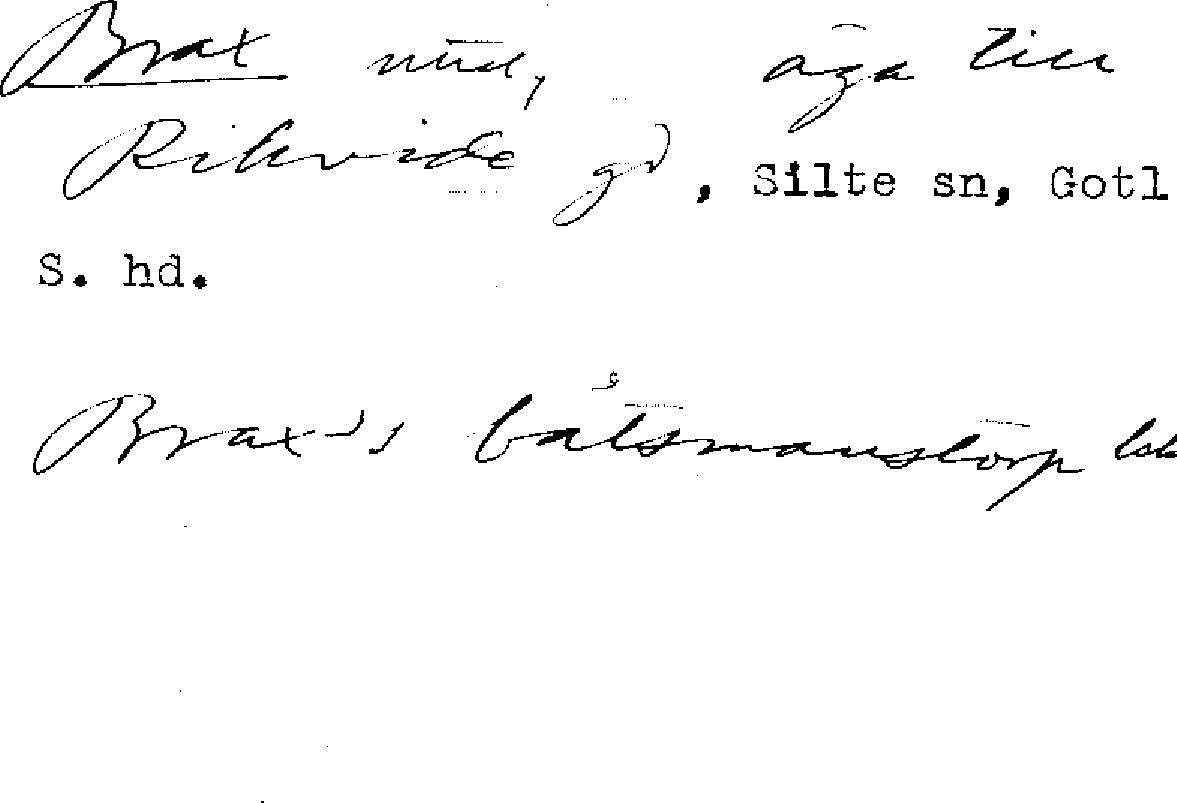 Brax mtid, äga till
Rikvide gd, Silte sn, Gotl
S. hd.
Brax's båtsmanstorp